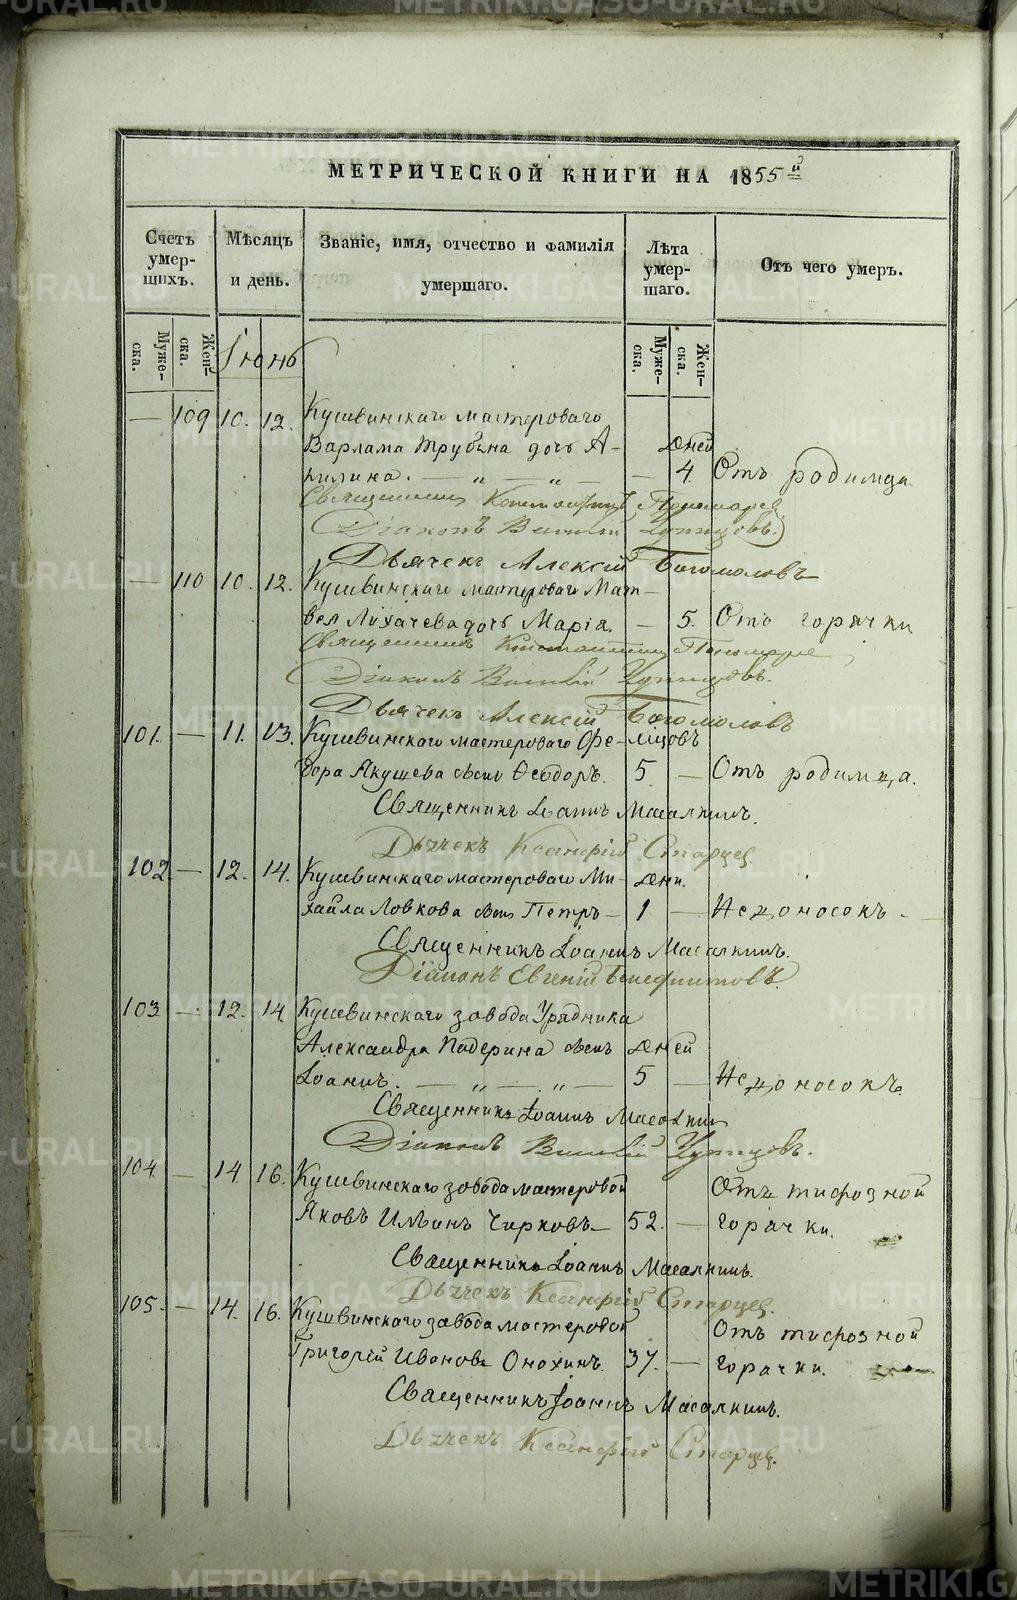 МЕТРИЧЕСКОЙ КНИГИ НА 1855й
Счетъ умер-шихъ.
Мѣсяцъ и день.
Званіе, имя, отчество и фамилія умершаго.
Лѣта умер-шаго.
Отъ чего умеръ.
Муже-ска.
Жен-ска.
Муже-ска.
Жен-ска.
Іюнь
— 109 10. 12. Кушвинскаго мастероваго
Варлама Трубина дочь А- дней
килина. — „ — „ — — 4. Отъ родимца
Священникъ Константинъ Пономаревъ
Діаконъ Василій Чупинцовъ.
Дьячекъ Алексій Богомоловъ
— 110 10. 12. Кушвинскаго мастероваго Мат-
вея Лихачева дочь Марія. — 5. Отъ горячки
Священникъ Константинъ Пономаре
Діаконъ Василій
Дьячекъ Алексій Богомоловъ
101. — 11. 13. Кушвинскаго мастероваго Фе- мѣсяцовъ
дора Якушева сынъ Ѳеодоръ. 5 — Отъ родимца.
Священникъ Іоаннъ Масалкинъ.
Дьячекъ Ксенфій Старцев
102. — 12. 14. Кушвинскаго мастероваго Ми- дни.
хайла Ловкова сынъ Петръ — 1 — Недоносокъ.
Священникъ Іоаннъ Масалкинъ.
Діаконъ Евгеній
103. — 12. 14 Кушвинскаго завода Урядника
Александра Падерина сынъ дней
Іоаннъ. — „ — „ — 5 — Недоносокъ.
Священникъ Іоаннъ Масалкин
Діаконъ Василій
104. — 14. 16. Кушвинскаго завода мастеровой Отъ тифозной
Яковъ Ильинъ Чирковъ — 52. — горячки.
Священникъ Іоаннъ Масалкинъ.
Дьячекъ Ксенфій Старцев.
105. — 14. 16. Кушвинскаго завода мастеровой Отъ тифозной
Григорій Ивановъ Онохинъ. 37. — горячки.
Священникъ Іоаннъ Масалкинъ.
Дьячекъ Ксенфій Старцев.
METRIKI.GASO-URAL.RU